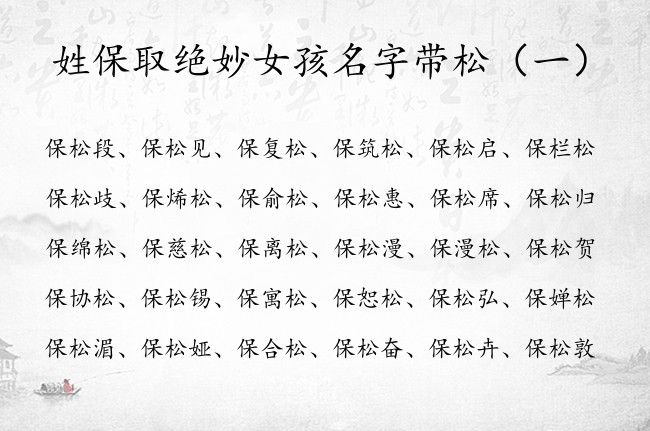 姓保取绝妙女孩名字带松（一）
保松段、保松见、保复松、保筑松、保松启、保栏松
保松歧、保烯松、保俞松、保松惠、保松席、保松归
保绵松、保慈松、保离松、保松漫、保漫松、保松贺
保协松、保松锡、保寓松、保恕松、保松弘、保婵松
保松湄、保松娅、保合松、保松奋、保松卉、保松敦